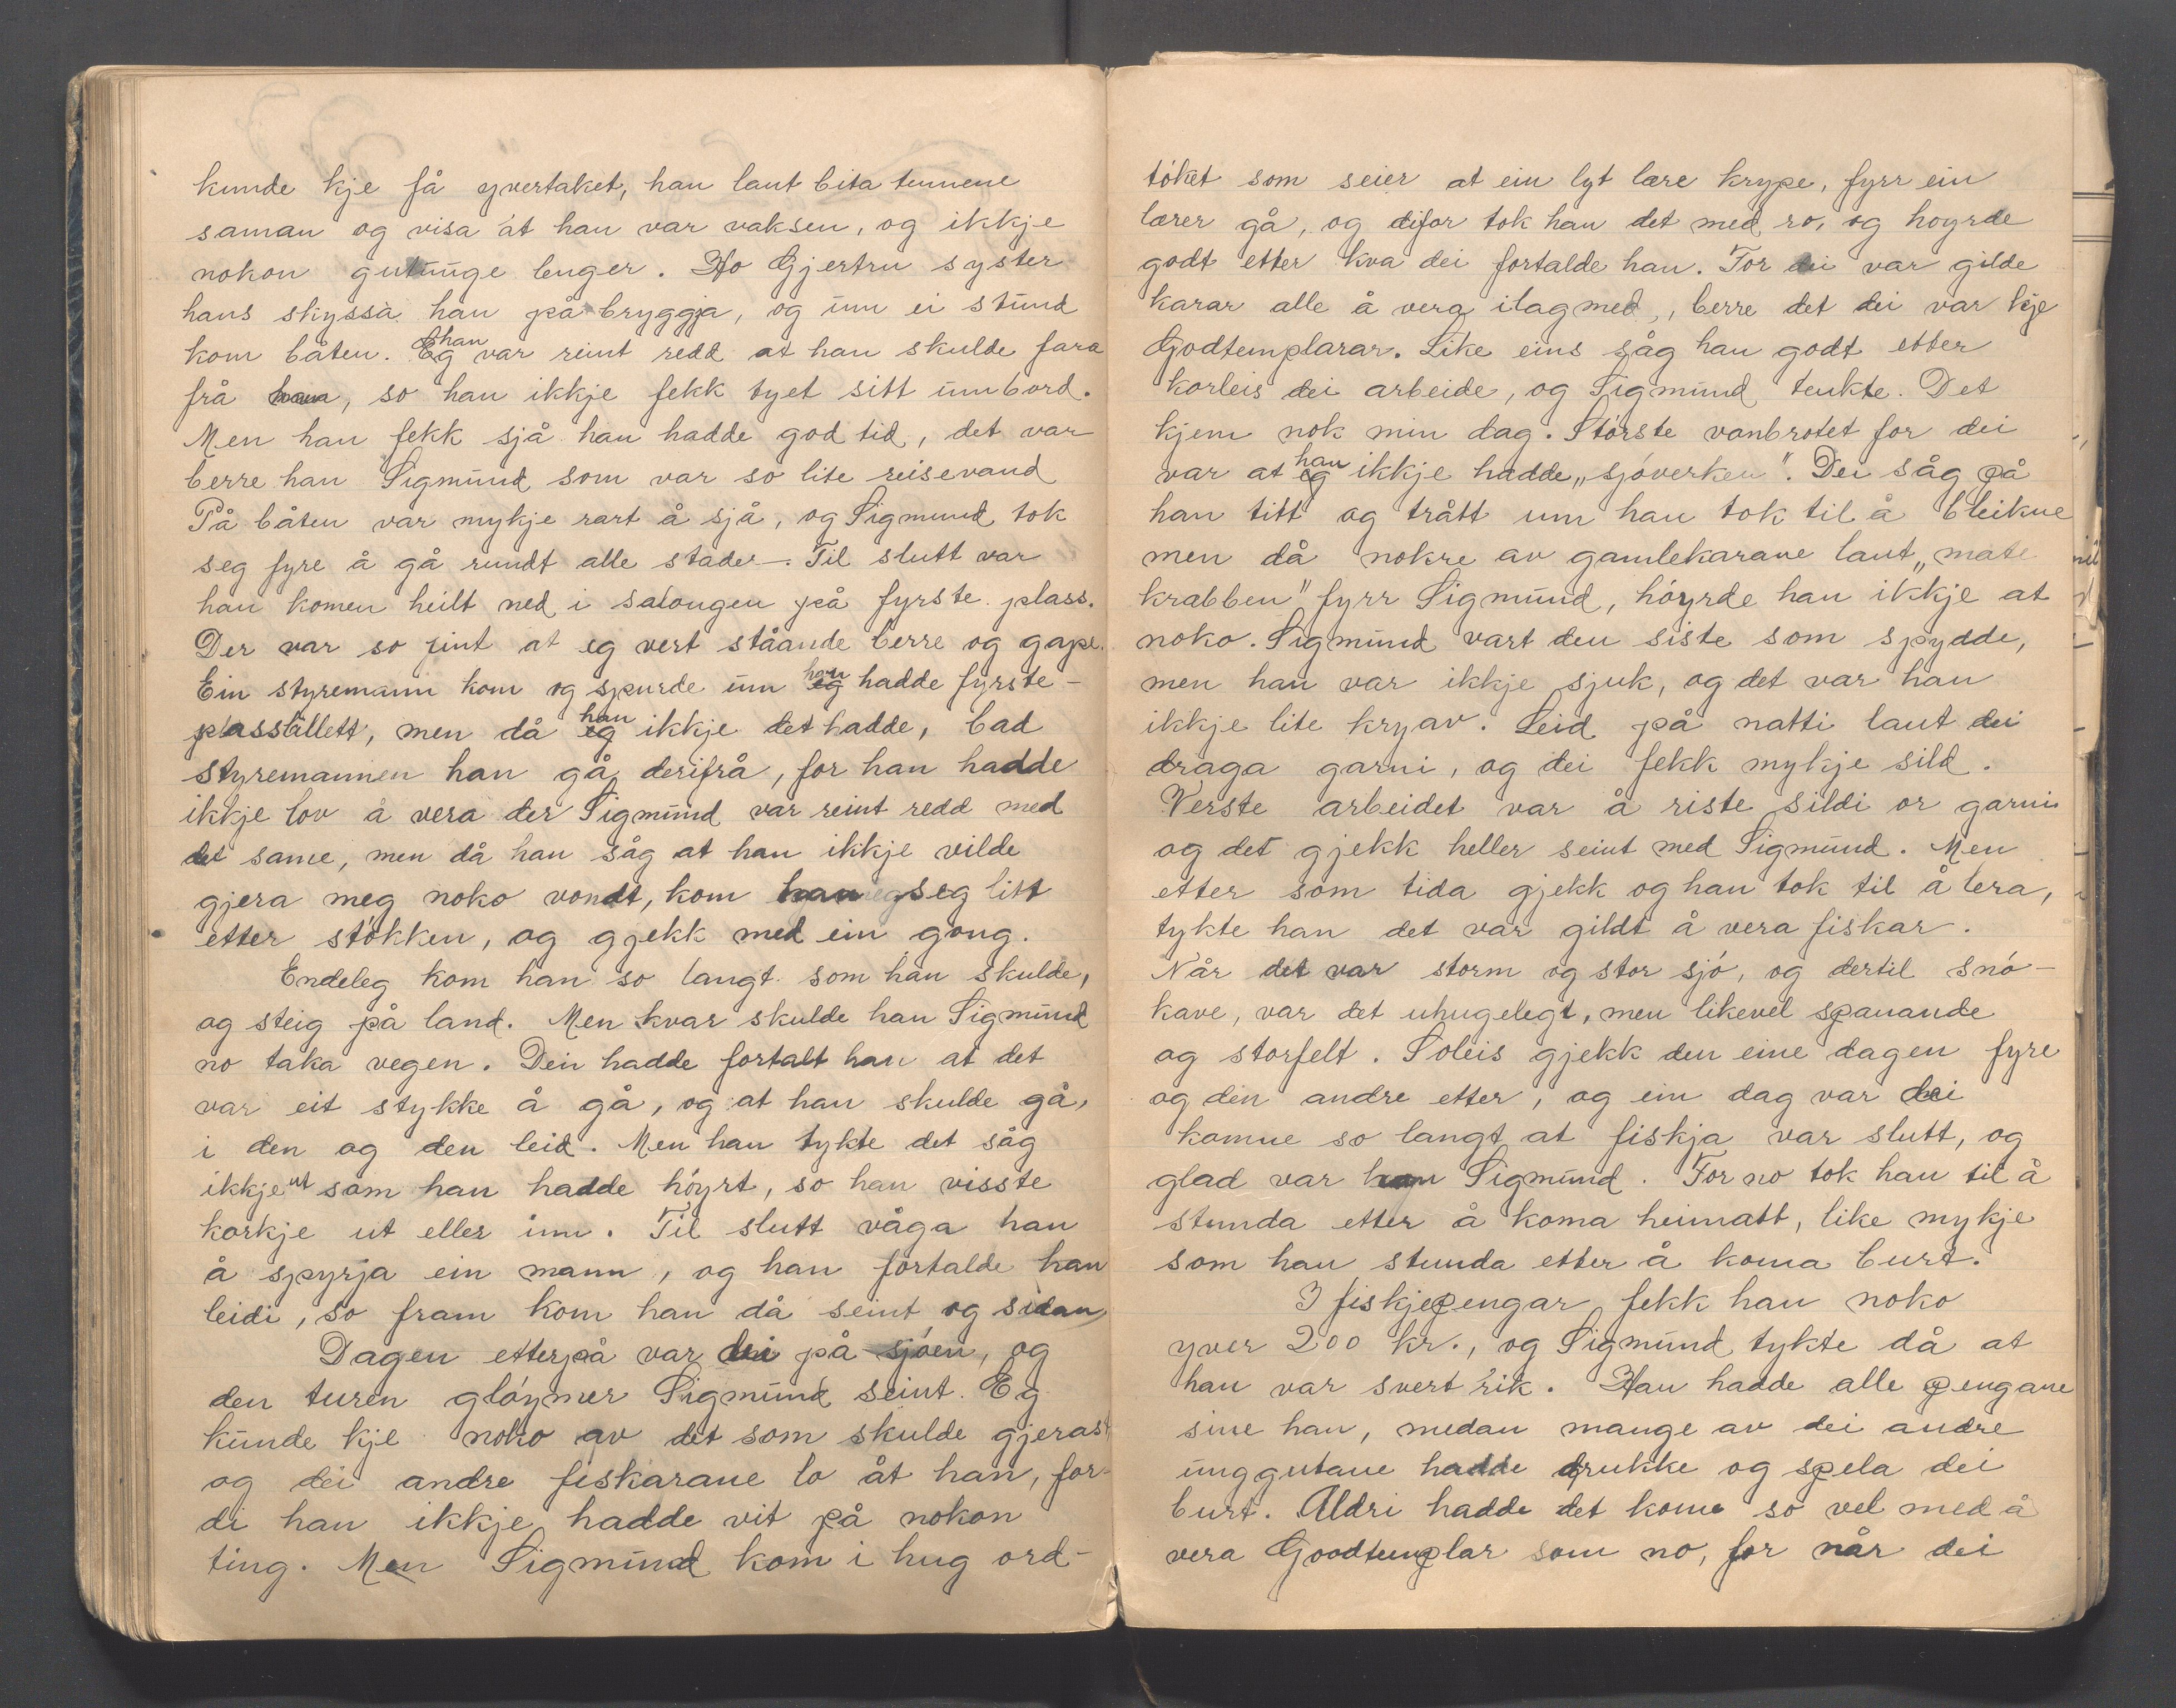 kunde kje få yvertaket, han laut bita tennene
saman og visa åt han var vaksen, og ikkje
nokon gutunge lenger. Ho Gjertru syster
hans skyssa han på bryggja, og um ei stund
kom båten. Eg han var reint redd at han skulde fara
frå han, so han ikkje fekk tyet sitt umbord.
Men han fekk sjå han hadde god tid, det var
berre han Sigmund som var so lite reisevand
På båten var mykje rart å sjå, og Sigmund tok
seg fyre å gå rundt alle stader. Til slutt var
han komen heilt ned i salongen på fyrste plass.
Der var so fint at eg vert ståande berre og gape.
Ein styremann kom og spurde um eg han hadde fyrste-
plassbillett, men då eg han ikkje det hadde, bad
styremannen han gå derifrå, for han hadde
ikkje lov å vera der Sigmund var reint redd med
det same, men då han såg at han ikkje vilde
gjera meg noko vondt, kom han seg litt
etter stókken, og gjekk med ein gong.
Endeleg kom han so langt som han skulde,
og steig på land. Men kvar skulde han Sigmund
no taka vegen. Dei hadde fortalt han at det
var eit stykke å gå, og at han skulde gå,
i den og den leid. Men han tykte det såg
ikkje ut som han hadde hóyrt, so han visste
korkje ut eller inn. Til slutt våga han
å spyrja ein mann, og han fortalde han
leidi, so fram kom han då seint og sidan
Dagen etterpå var dei på sjóen, og
den turen glóymer Sigmund seint. Eg
kunde kje noko av det som skulde gjerast
og dei andre fiskarane lo åt han, for-
di han ikkje hadde vit på nokon
ting. Men Sigmund kom i hug ord-
tóket som seier at ein lyt lære krype, fyrr ein
lærer gå, og difor tok han det med ro, og hoyrde
godt etter kva dei fortalde han. For dei var gilde
karar alle å vera ilag med, berre det dei var kje
Godtemplarar. Like eins såg han godt etter
korleis dei arbeide, og Sigmund tenkte. Det
kjem nok min dag. Stórste vanbrotet for dei
var at eg han ikkje hadde „sjóverken". Dei såg på
han titt og trått um han tok til å bleikne
men då nokre av gamlekarane laut „mate
krabben" fyrr Sigmund, hóyrde han ikkje at
noko. Sigmund vart den siste som spydde,
men han var ikkje sjuk, og det var han
ikkje lite kry av. Leid på natti laut dei
draga garni, og dei fekk mykje sild.
Verste arbeidet var å riste sildi or garni
og det gjekk heller seint med Sigmund. Men
etter som tida gjekk og han tok til å lera,
tykte han det var gildt å vera fiskar.
Når det var storm og stor sjó, og dertil snó-
kave, var det uhugelegt, men likevel spanande
og storfelt. Soleis gjekk den eine dagen fyre
og den andre etter, og ein dag var dei
komne so langt at fiskja var slutt, og
glad var han Sigmund. For no tok han til å
stunda etter å koma heimatt, like mykje
som han stunda etter å koma burt.
I fiskjepengar fekk han noko
yver 200 kr., og Sigmund tykte då at
han var svert rik. Han hadde alle pengane
sine han, medan mange av dei andre
unggutane hadde drukke og spela dei
burt. Aldri hadde det kome so vel med å
vera Goodtemplar som no, for når dei